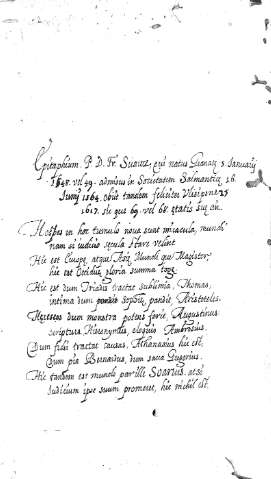 Epitaphium. P. D. Fr. Suarez, qui natus Granatę 5 Januarij
1548. vel 49. admissus in Societatem Salmanticę 16.
Junij 1564. obijt tandem feliciter Vlisipone 25
1617. sic que 69. vel 68. ętatis suę an.
Hospes in hoc tumulo nova sunt miracula, mundi
nam si iudicio secula stare velint
Hic est Europę, atque Aſię Mundi que Magister,
hic est Occiduę gloria summa
Hic est dum Triadis tractat sublimia, Thomas,
intima dum Sophię, pandit, Aristoteles.
Hęreses dum monstra potens ferit, Augustinus
scriptura Hieronymus, eloquio Ambrosius.
Dum fidei tractat causas, Athanasius hic est.
Dum pia Bernardus, dum sacra Gregorius.
Hic tandem est mundo par ille SOARIUS. at se
Iudicium ipse suum promeret, hic nihil est.